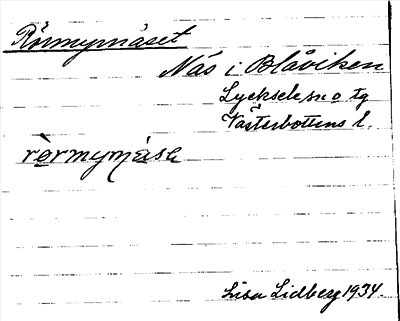 Rörmyrnäset
Näs i Blåviken
Lycksele sn o tg
Västerbottens l.
Lisa Lidberg 1934.